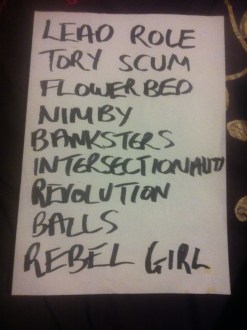 LEAD ROLE
TORY SCUM
FLOWERBED
NIMBY
BANKSTERS
INTERSECTIONALITY
REVOLUTION
BALLS
REBEL GIRL